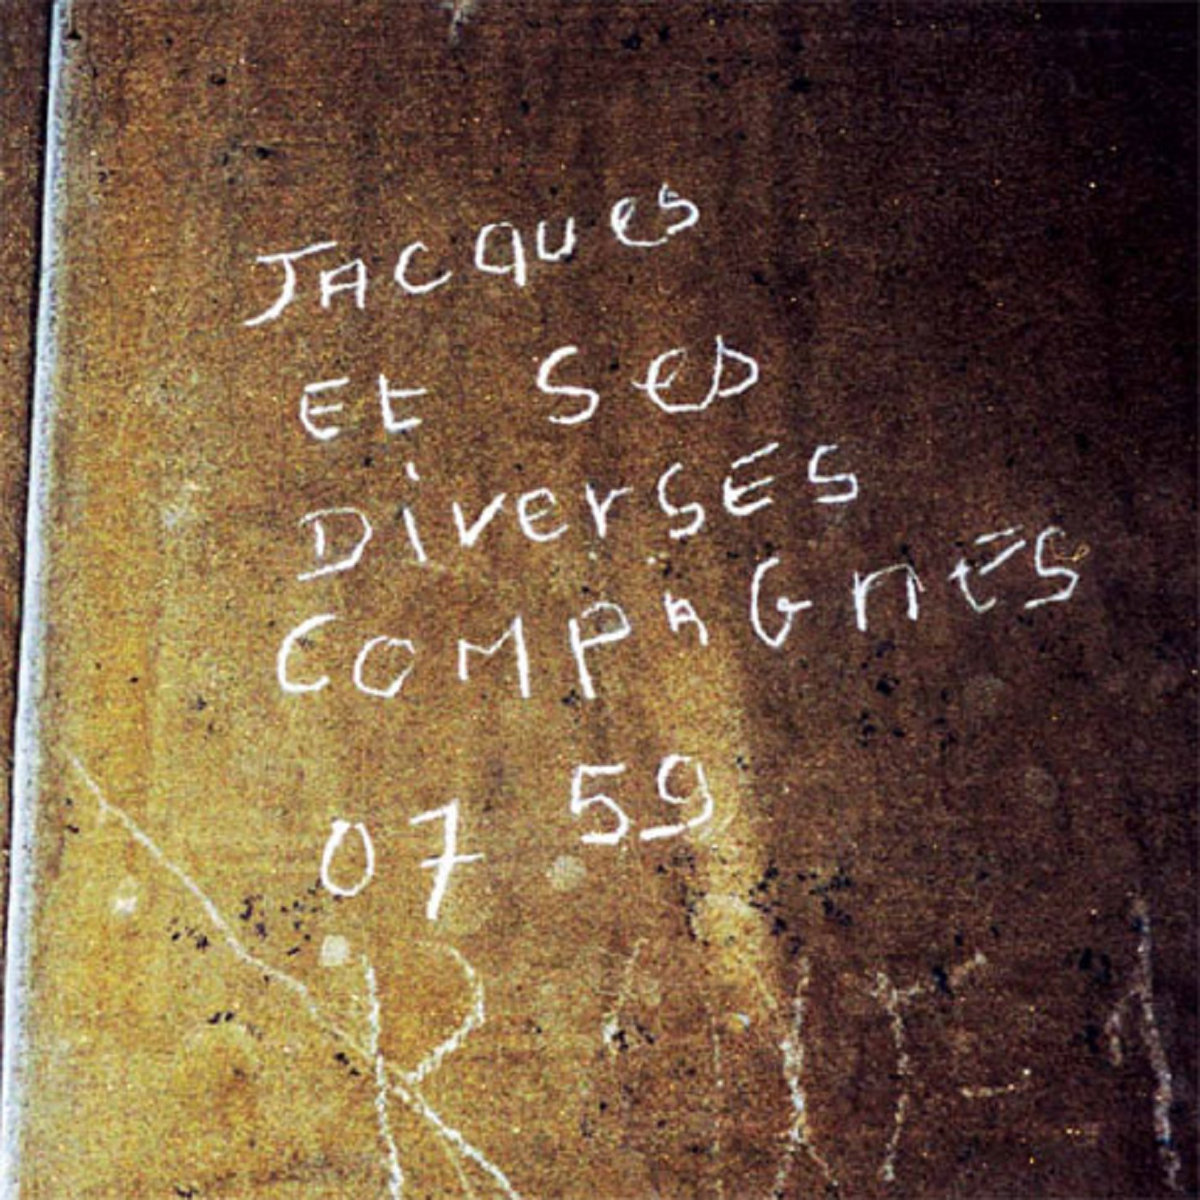 Jacques
Et Ses
DiverSES
COMPAGnES
07 59